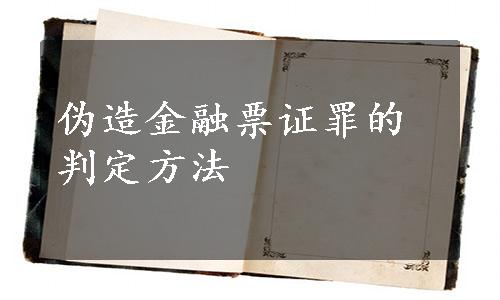 伪造金融票证罪的
判定方法